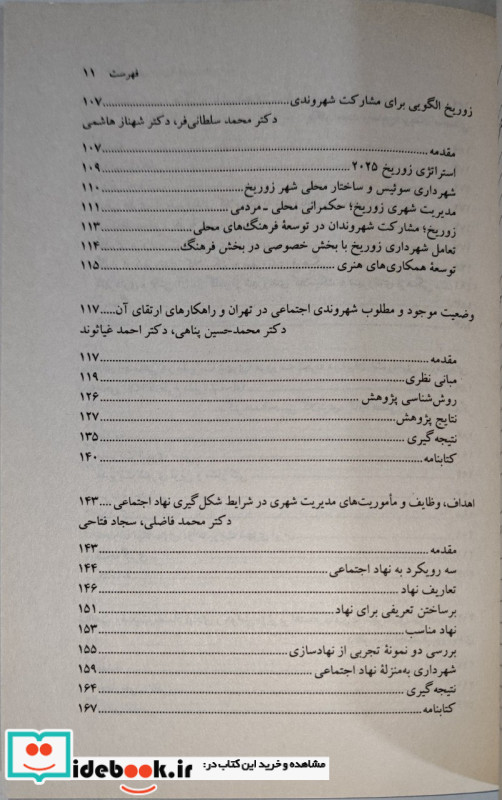 فهرست ۱۱
زوریخ الگویی برای مشارکت شهروندی ........ ۱۰۷
دکتر محمد سلطانی‌فر، دکتر شهناز هاشمی
مقدمه ........ ۱۰۷
استراتژی زوریخ ۲۰۲۵ ........ ۱۰۹
شهرداری سوئیس و ساختار محلی شهر زوریخ ........ ۱۱۰
مدیریت شهری زوریخ؛ حکمرانی محلی ـ مردمی ........ ۱۱۱
زوریخ؛ مشارکت شهروندان در توسعهٔ فرهنگ‌های محلی ........ ۱۱۳
تعامل شهرداری زوریخ با بخش خصوصی در بخش فرهنگ ........ ۱۱۴
توسعهٔ همکاری‌های هنری ........ ۱۱۵
وضعیت موجود و مطلوب شهروندی اجتماعی در تهران و راهکارهای ارتقای آن ..... ۱۱۷
دکتر محمدحسین پناهی، دکتر احمد غیاثوند
مقدمه ........ ۱۱۷
مبانی نظری ........ ۱۱۹
روش‌شناسی پژوهش ........ ۱۲۶
نتایج پژوهش ........ ۱۲۷
نتیجه‌گیری ........ ۱۳۵
کتابنامه ........ ۱۴۰
اهداف، وظایف و مأموریت‌های مدیریت شهری در شرایط شکل‌گیری نهاد اجتماعی .... ۱۴۳
دکتر محمد فاضلی، سجاد فتاحی
مقدمه ........ ۱۴۳
سه رویکرد به نهاد اجتماعی ........ ۱۴۴
تعاریف نهاد ........ ۱۴۶
برساختن تعریفی برای نهاد ........ ۱۵۱
نهاد مناسب ........ ۱۵۳
بررسی دو نمونهٔ تجربی از نهادسازی ........ ۱۵۵
شهرداری به‌منزلهٔ نهاد اجتماعی ........ ۱۵۹
نتیجه‌گیری ........ ۱۶۴
کتابنامه ........ ۱۶۷
مشاهده و خرید این کتاب در:
idebook.ir